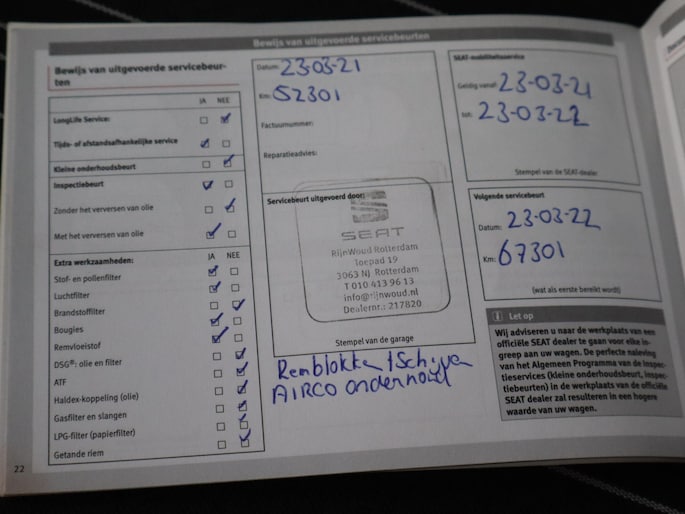 Bewijs van uitgevoerde servicebeurten
Bewijs van uitgevoerde servicebeur-
ten
JA NEE
LongLife Service:
Tijds- of afstandsafhankelijke service
Kleine onderhoudsbeurt
Inspectiebeurt
Zonder het verversen van olie
Met het verversen van olie
Extra werkzaamheden: JA NEE
Stof- en pollenfilter
Luchtfilter
Brandstoffilter
Bougies
Remvloeistof
DSG®: olie en filter
ATF
Haldex-koppeling (olie)
Gasfilter en slangen
LPG-filter (papierfilter)
Getande riem
22
Datum: 23-03-21
Km: 52301
Factuurnummer:
Reparatieadvies:
Servicebeurt uitgevoerd door:
SEAT
RijnWoud Rotterdam
Toepad 19
3063 NJ Rotterdam
T 010 413 96 13
info@rijnwoud.nl
Dealernr.: 217820
Stempel van de garage
Remblokke + Schyven
AIRCO onderhoud
SEAT-mobiliteitsservice
Geldig vanaf: 23-03-21
tot: 23-03-22
Stempel van de SEAT-dealer
Volgende servicebeurt
Datum: 23-03-22
Km: 67301
(wat als eerste bereikt wordt)
i Let op
Wij adviseren u naar de werkplaats van een
officiële SEAT dealer te gaan voor elke in-
greep aan uw wagen. De perfecte naleving
van het Algemeen Programma van de Inspec-
tieservices (kleine onderhoudsbeurt, inspec-
tiebeurten) in de werkplaats van de officiële
SEAT dealer zal resulteren in een hogere
waarde van uw wagen.